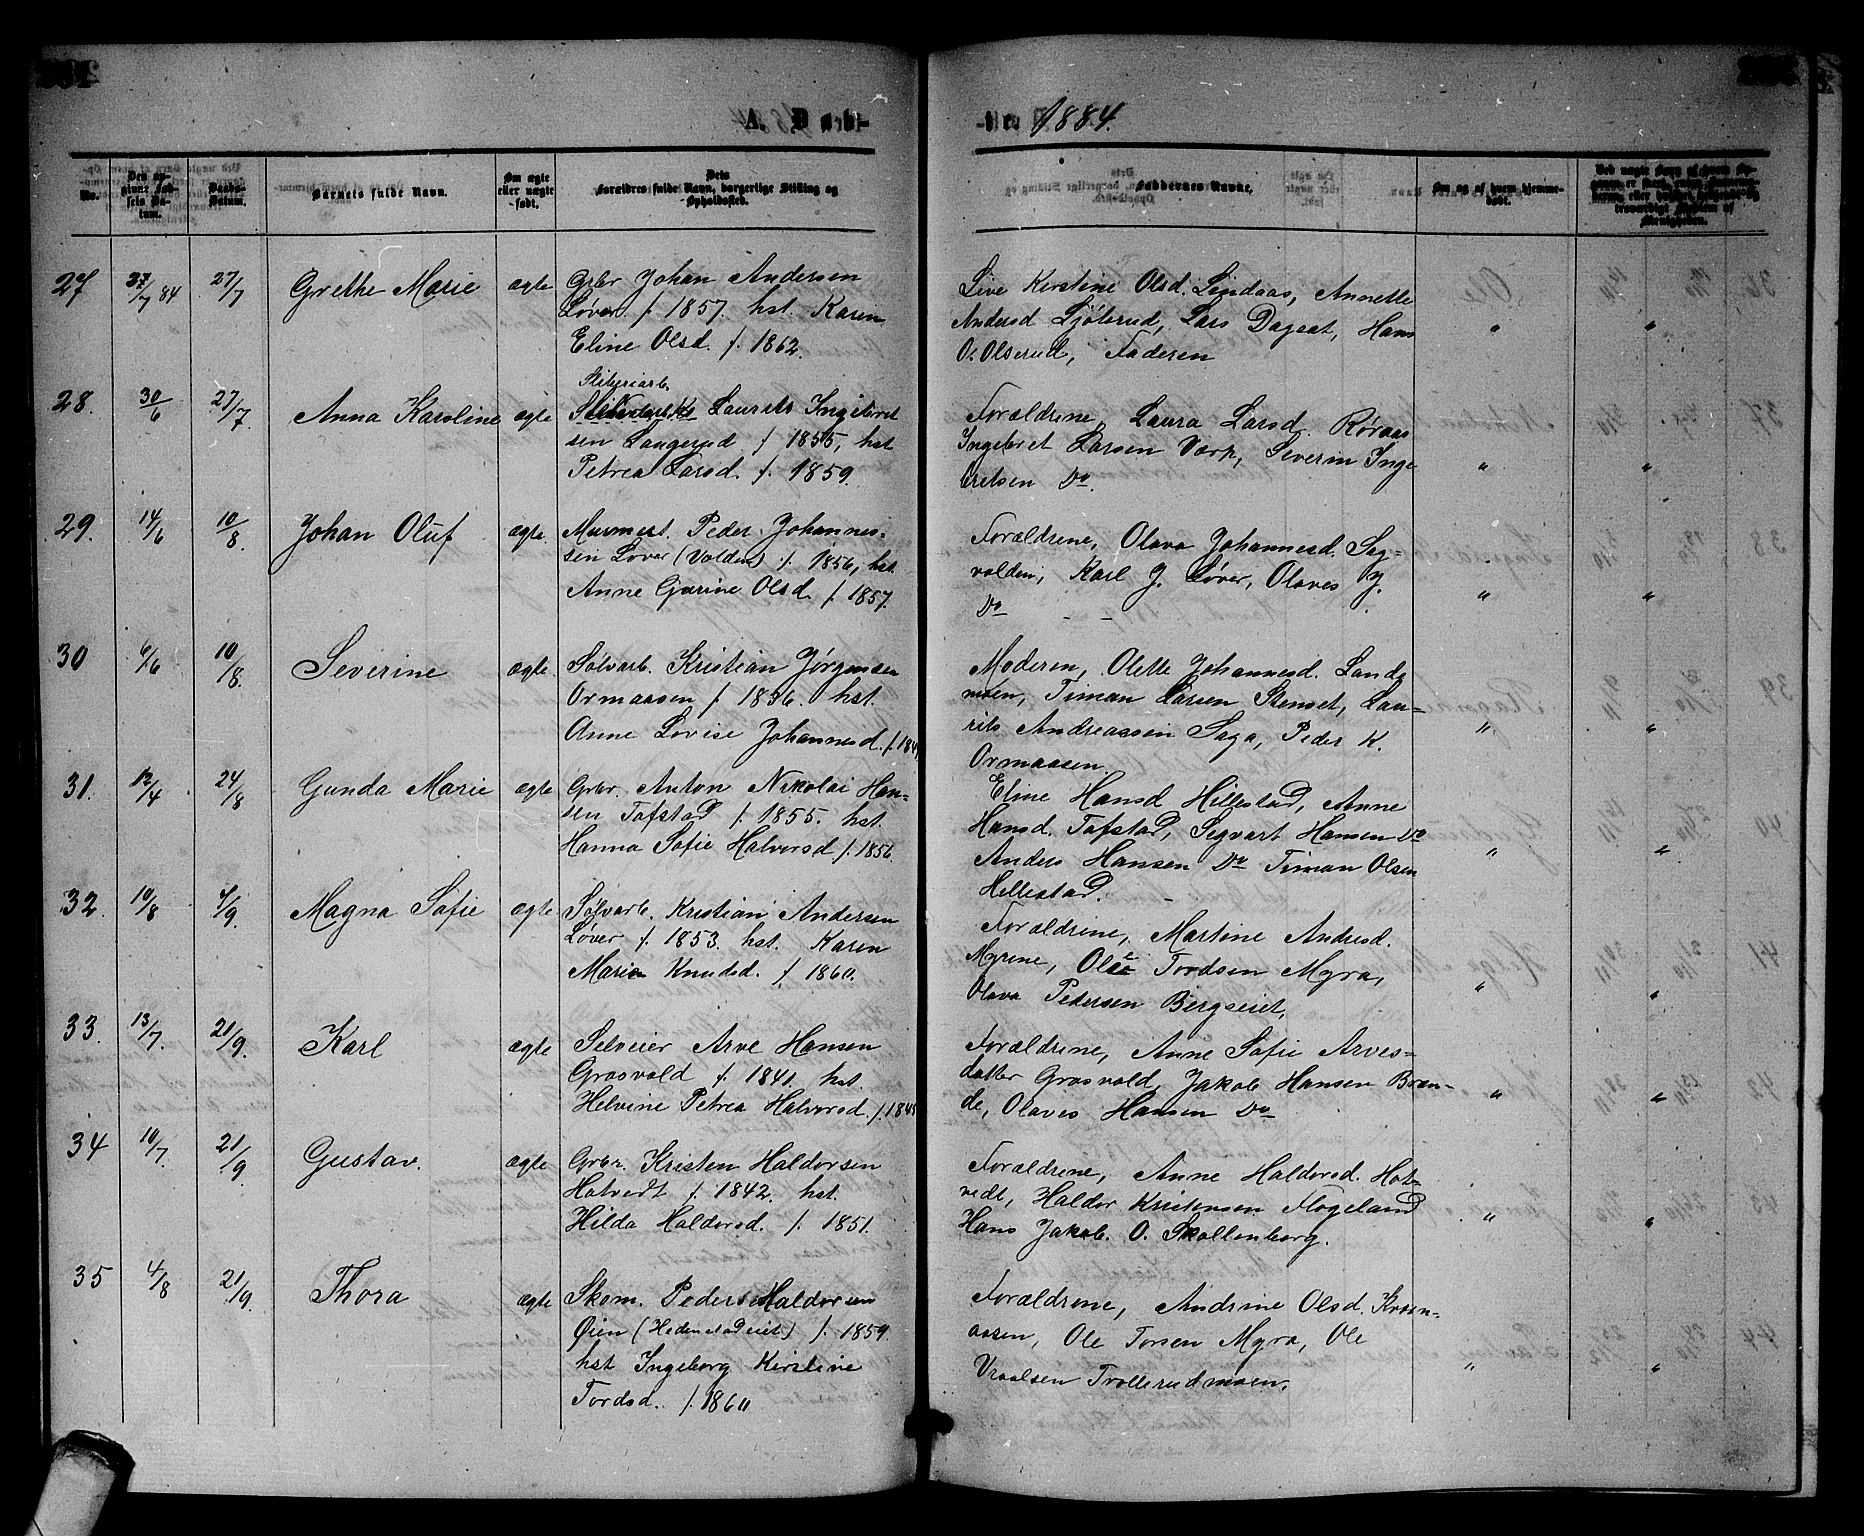 A. Død-
-te 1884.
No.
Den op-
givne Fød-
sels Da-
tum.
Daabs-
Datum.
Barnets fulde Navn.
Om ægte
eller uægte
født.
Dets
Forældres fulde Navn, borgerlige Stilling og
Opholdssted.
Faddernes Navne.
Om og af hvem hjemme-
døbt.
27 27/7 84 27/7 Grethe Marie ægte Grbr Johan Andersen
Løver f. 1857. hst. Karen
Eline Olsd. f. 1862.
Live Kirstine Olsd. Lindaas, Annette
Andersd Ljøterud, Lars Dagsat, Hans
O. Olserud, Faderen
28. 30/6 27/7. Anna Karoline ægte Sliberiarb.
Laurits Ingebret
sen Laugerud f 1855, hst
Petrea Larsd. f. 1859.
Forældrene, Laura Larsd. Røraas
Ingebret Larsen Værp, Severin Inge
bretsen Do.
29. 14/6 10/8. Johan Oluf ægte. Murmest. Peder Johannes-
sen Løver (Volden) f. 1856, hst.
Anne Gurine Olsd f. 1857.
Forældrene, Olava Johannesd. Sag-
volden, Karl J. Løver, Olaves J.
Do
30 6/6 10/8. Severine ægte. Sølvarb. Kristian Jørgensen
Ormaasen f. 1836. hst.
Anne Lovise Johannesd. f. 184
Moderen, Olette Johannesd. Lande
moen, Timan Larsen Stenset, Lau-
rits Andreassen Saga, Peder K.
Ormaasen
31. 12/4 24/8 Gunda Marie ægte Grbr. Anton Nikolai Han-
sen Tofstad f. 1855. hst.
Hanna Sofie Halvorsd f. 1856.
Eline Hansd Hillestad, Anne
Hansd. Tofstad, Segvart Hansen Do
Anders Hansen Do Timan Olsen
Hillestad.
32. 10/8 7/9. Magna Sofie ægte Sølvarb. Kristian Andersen
Løver f. 1853. hst. Karen
Marie Knudsd. f. 1860.
Forældrene, Martine Andresd.
Myrene, Ole Tordsen Myra,
Olava Pedersen Bergseiet.
33. 13/7. 21/9. Karl ægte Selveier Arve Hansen
Grosvold f. 1841. hst.
Helvine Petrea Halvorsd. f. 184
Forældrene, Anne Sofie Arves-
datter Grosvold, Jakob Hansen Bran-
de, Olaves Hansen Do
34 10/7. 21/9 Gustav. ægte Grbr. Kristen Haldorsen
Hotvedt f. 1842. hst.
Hilda Haldorsd. f. 1851.
Forældrene, Anne Haldorsd. Hot-
vedt, Haldor Kristensen Flogeland
Hans Jakob. O. Skollenborg.
35 4/8 21/9. Thora ægte Skom. Peder Haldorsen
Øien (Hedenstadeiet) f. 1859.
hst Ingeborg Kirstine
Tordsd. f. 1860
Forældrene, Andrine Olsd. Kraan-
aasen, Ole Torsen Myra, Ole
Vraalsen Trollerudmoen.